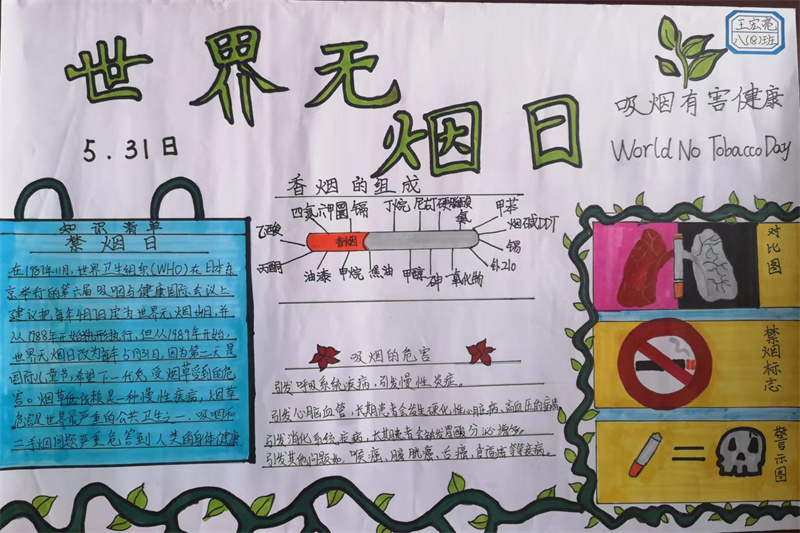 世界无
烟日
5.31日
王宏亮
八(18)班
吸烟有害健康
World No Tobacco Day
知识清单
禁烟日
在1987年11月,世界卫生组织(WHO)在日本东
京举行的第六届吸烟与健康国际会议上
建议把每年4月7日定为世界无烟日,并
从1988年开始执行,但从1989年开始,
世界无烟日改为每年5月31日,因为第二天是
国际儿童节,希望下一代免受烟草受到的危
害。烟草依赖是一种慢性疾病,烟草
危害是世界最严重的公共卫生之一,吸烟和
二手烟问题严重危害到人类的身体健康
香烟的组成
乙酸 四氨 甲 镉 丁烷 尼古丁 氨 甲苯
烟碱 DDT
香烟
锡
钋210
油漆 甲烷 焦油 甲醇 砷 一氧化物
吸烟的危害
引发呼吸系统疾病,引发慢性炎症。
引发心脑血管,长期患者会发生硬化性心脏病、高血压的
引发消化系统疾病,长期患者会引发胃酸分泌增多。
引发其他问题如,喉癌、膀胱癌、舌癌、食道癌等等疾病。
对比图
禁烟标志
警示图
=